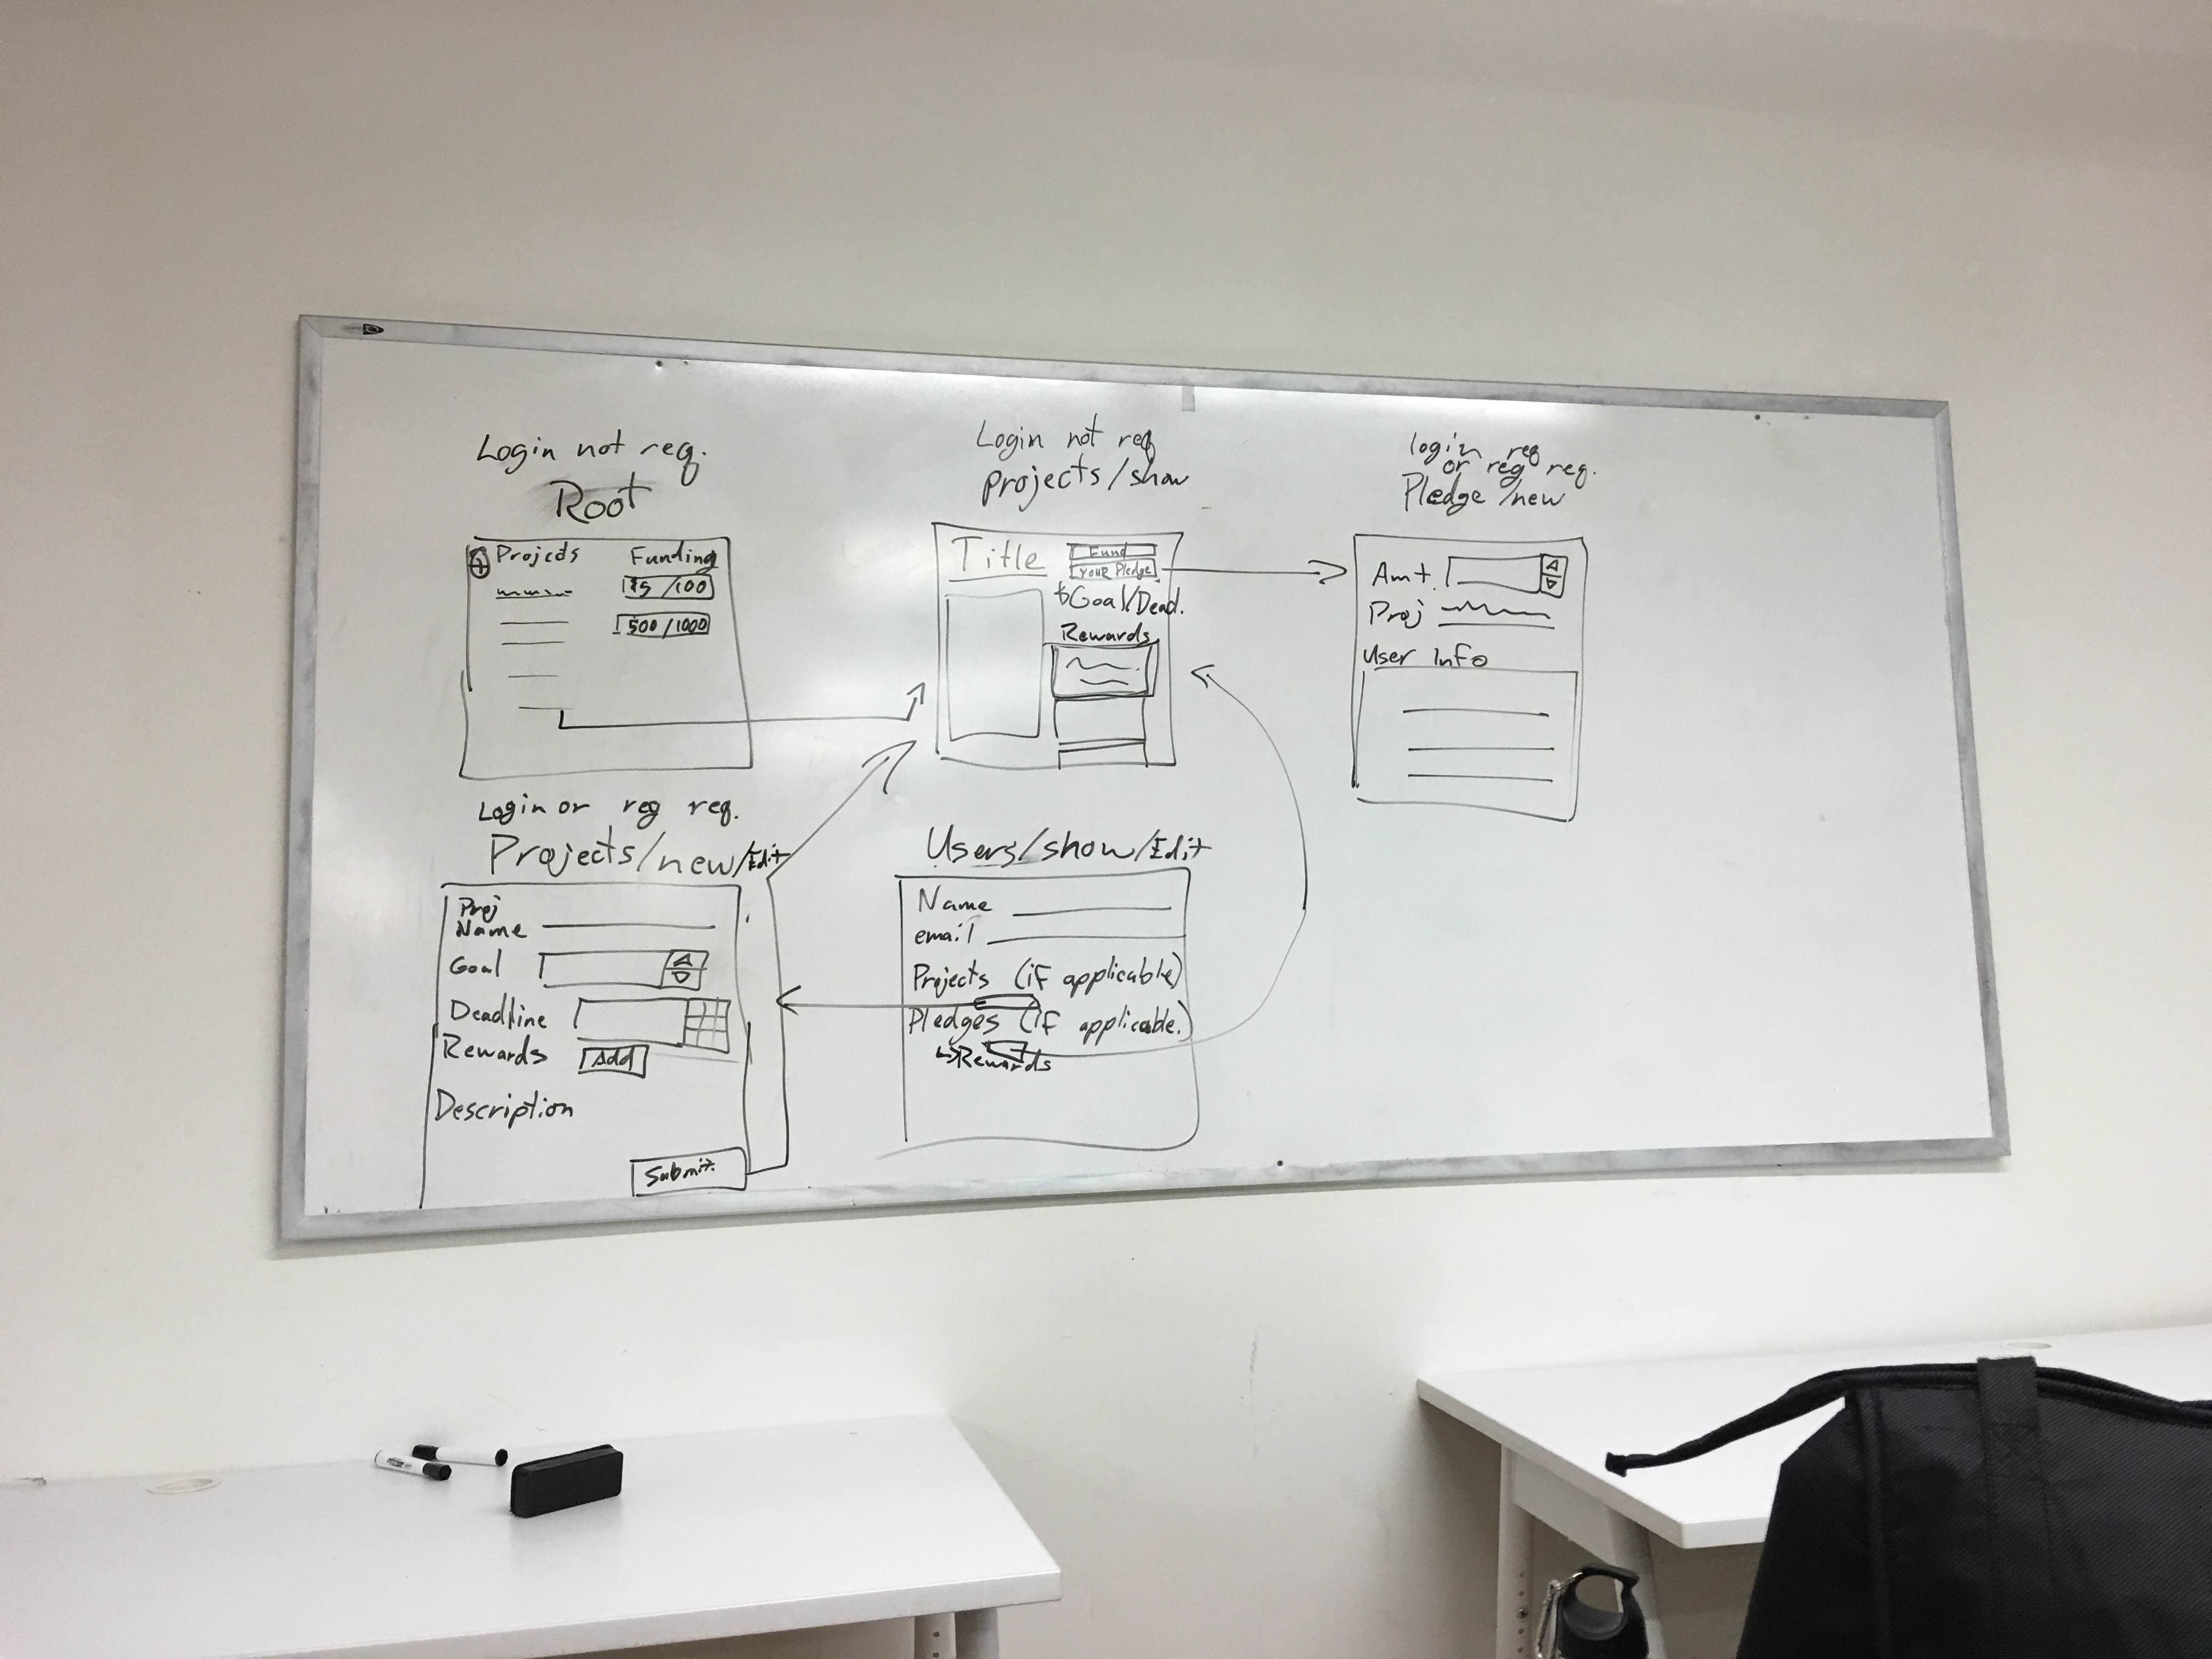 Login not req.
Root
Projects Funding
15/100
500/1000
Login not req
projects/show
Title
Fund
Your Pledge
$Goal/Dead.
Rewards
login req
or reg req.
Pledge/new
Amt.
Proj
User Info
Login or reg req.
Projects/new/Edit
Proj
Name
Goal
Deadline
Rewards Add
Description
Submit
Users/show/Edit
Name
email
Projects (if applicable)
Pledges (if applicable.)
Rewards